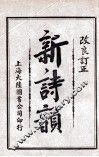 改良訂正
新詩韻
上海大陸圖書公司印行